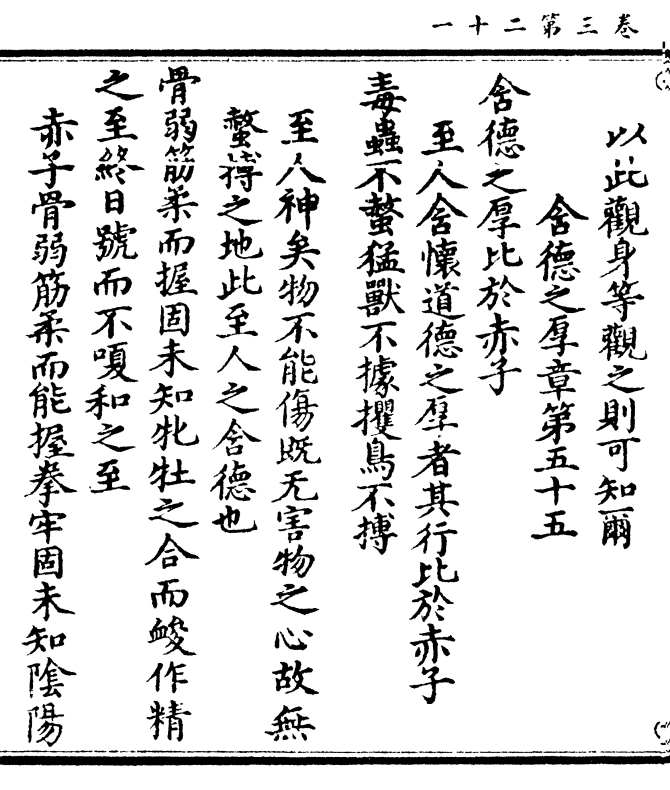 卷三第二十一
以此觀身等觀之則可知爾
含德之厚章第五十五
含德之厚比於赤子
至人含懷道德之厚者其行比於赤子
毒蟲不螫猛獸不據攫鳥不搏
至人神矣物不能傷既无害物之心故無
螫搏之地此至人之含德也
骨弱筋柔而握固未知牝牡之合而䘒作精
之至終日號而不嗄和之至
赤子骨弱筋柔而能握拳牢固未知陰陽